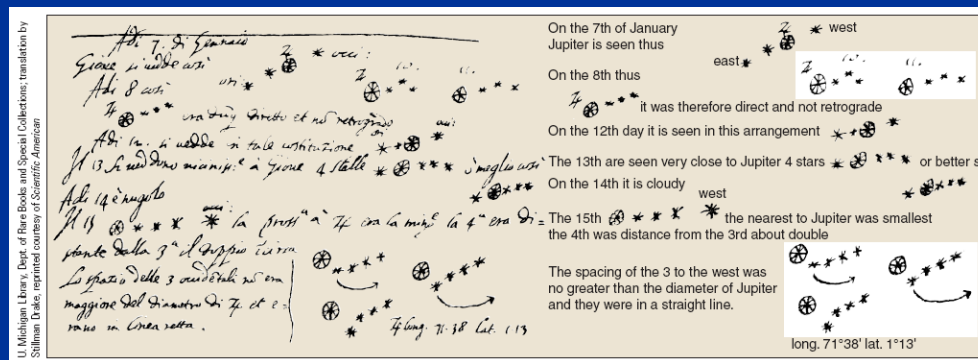 U. Michigan Library, Dept. of Rare Books and Special Collections; translation by
Stillman Drake, reprinted courtesy of Scientific American
Adi 7. di Gennaio
Giove si vedde così
occi:
Adi 8 così
ori
era dunq diretto et nõ retrogrado
Adi 12. si vedde in tale costituzione
Il 13 si veddono 4 stelle
ò meglio così
Adi 14 è nugolo
Il 15
la 4ª era di=
stante dalla 3ª il doppio
Lo spazio delle 3 occidētali nõ era
maggiore del diametro di ♃ et e:
rano in linea retta.
♃ long. 71.38 lat. 1.13
On the 7th of January
Jupiter is seen thus
west
east
On the 8th thus
it was therefore direct and not retrograde
On the 12th day it is seen in this arrangement
The 13th are seen very close to Jupiter 4 stars
or better s
On the 14th it is cloudy
west
The 15th
the nearest to Jupiter was smallest
the 4th was distance from the 3rd about double
The spacing of the 3 to the west was
no greater than the diameter of Jupiter
and they were in a straight line.
long. 71°38' lat. 1°13'